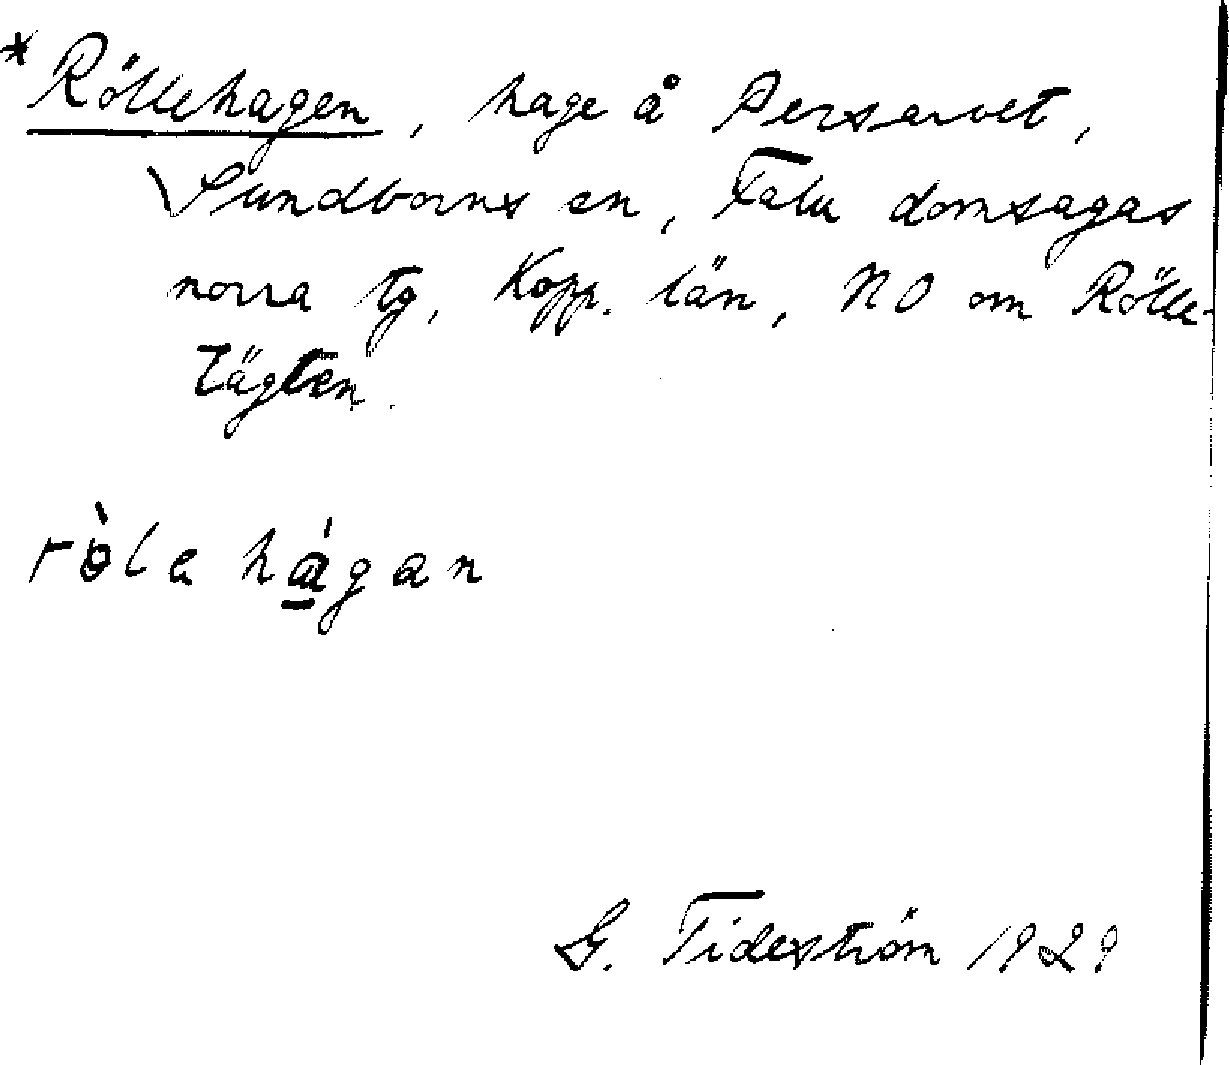 * Röllehagen, hage å Persarvet,
Sundborns sn, Falu domsagas
norra tg, Kopp. län, NO om Rölle-
tägten.
ròla hágan
G. Tideström 1929